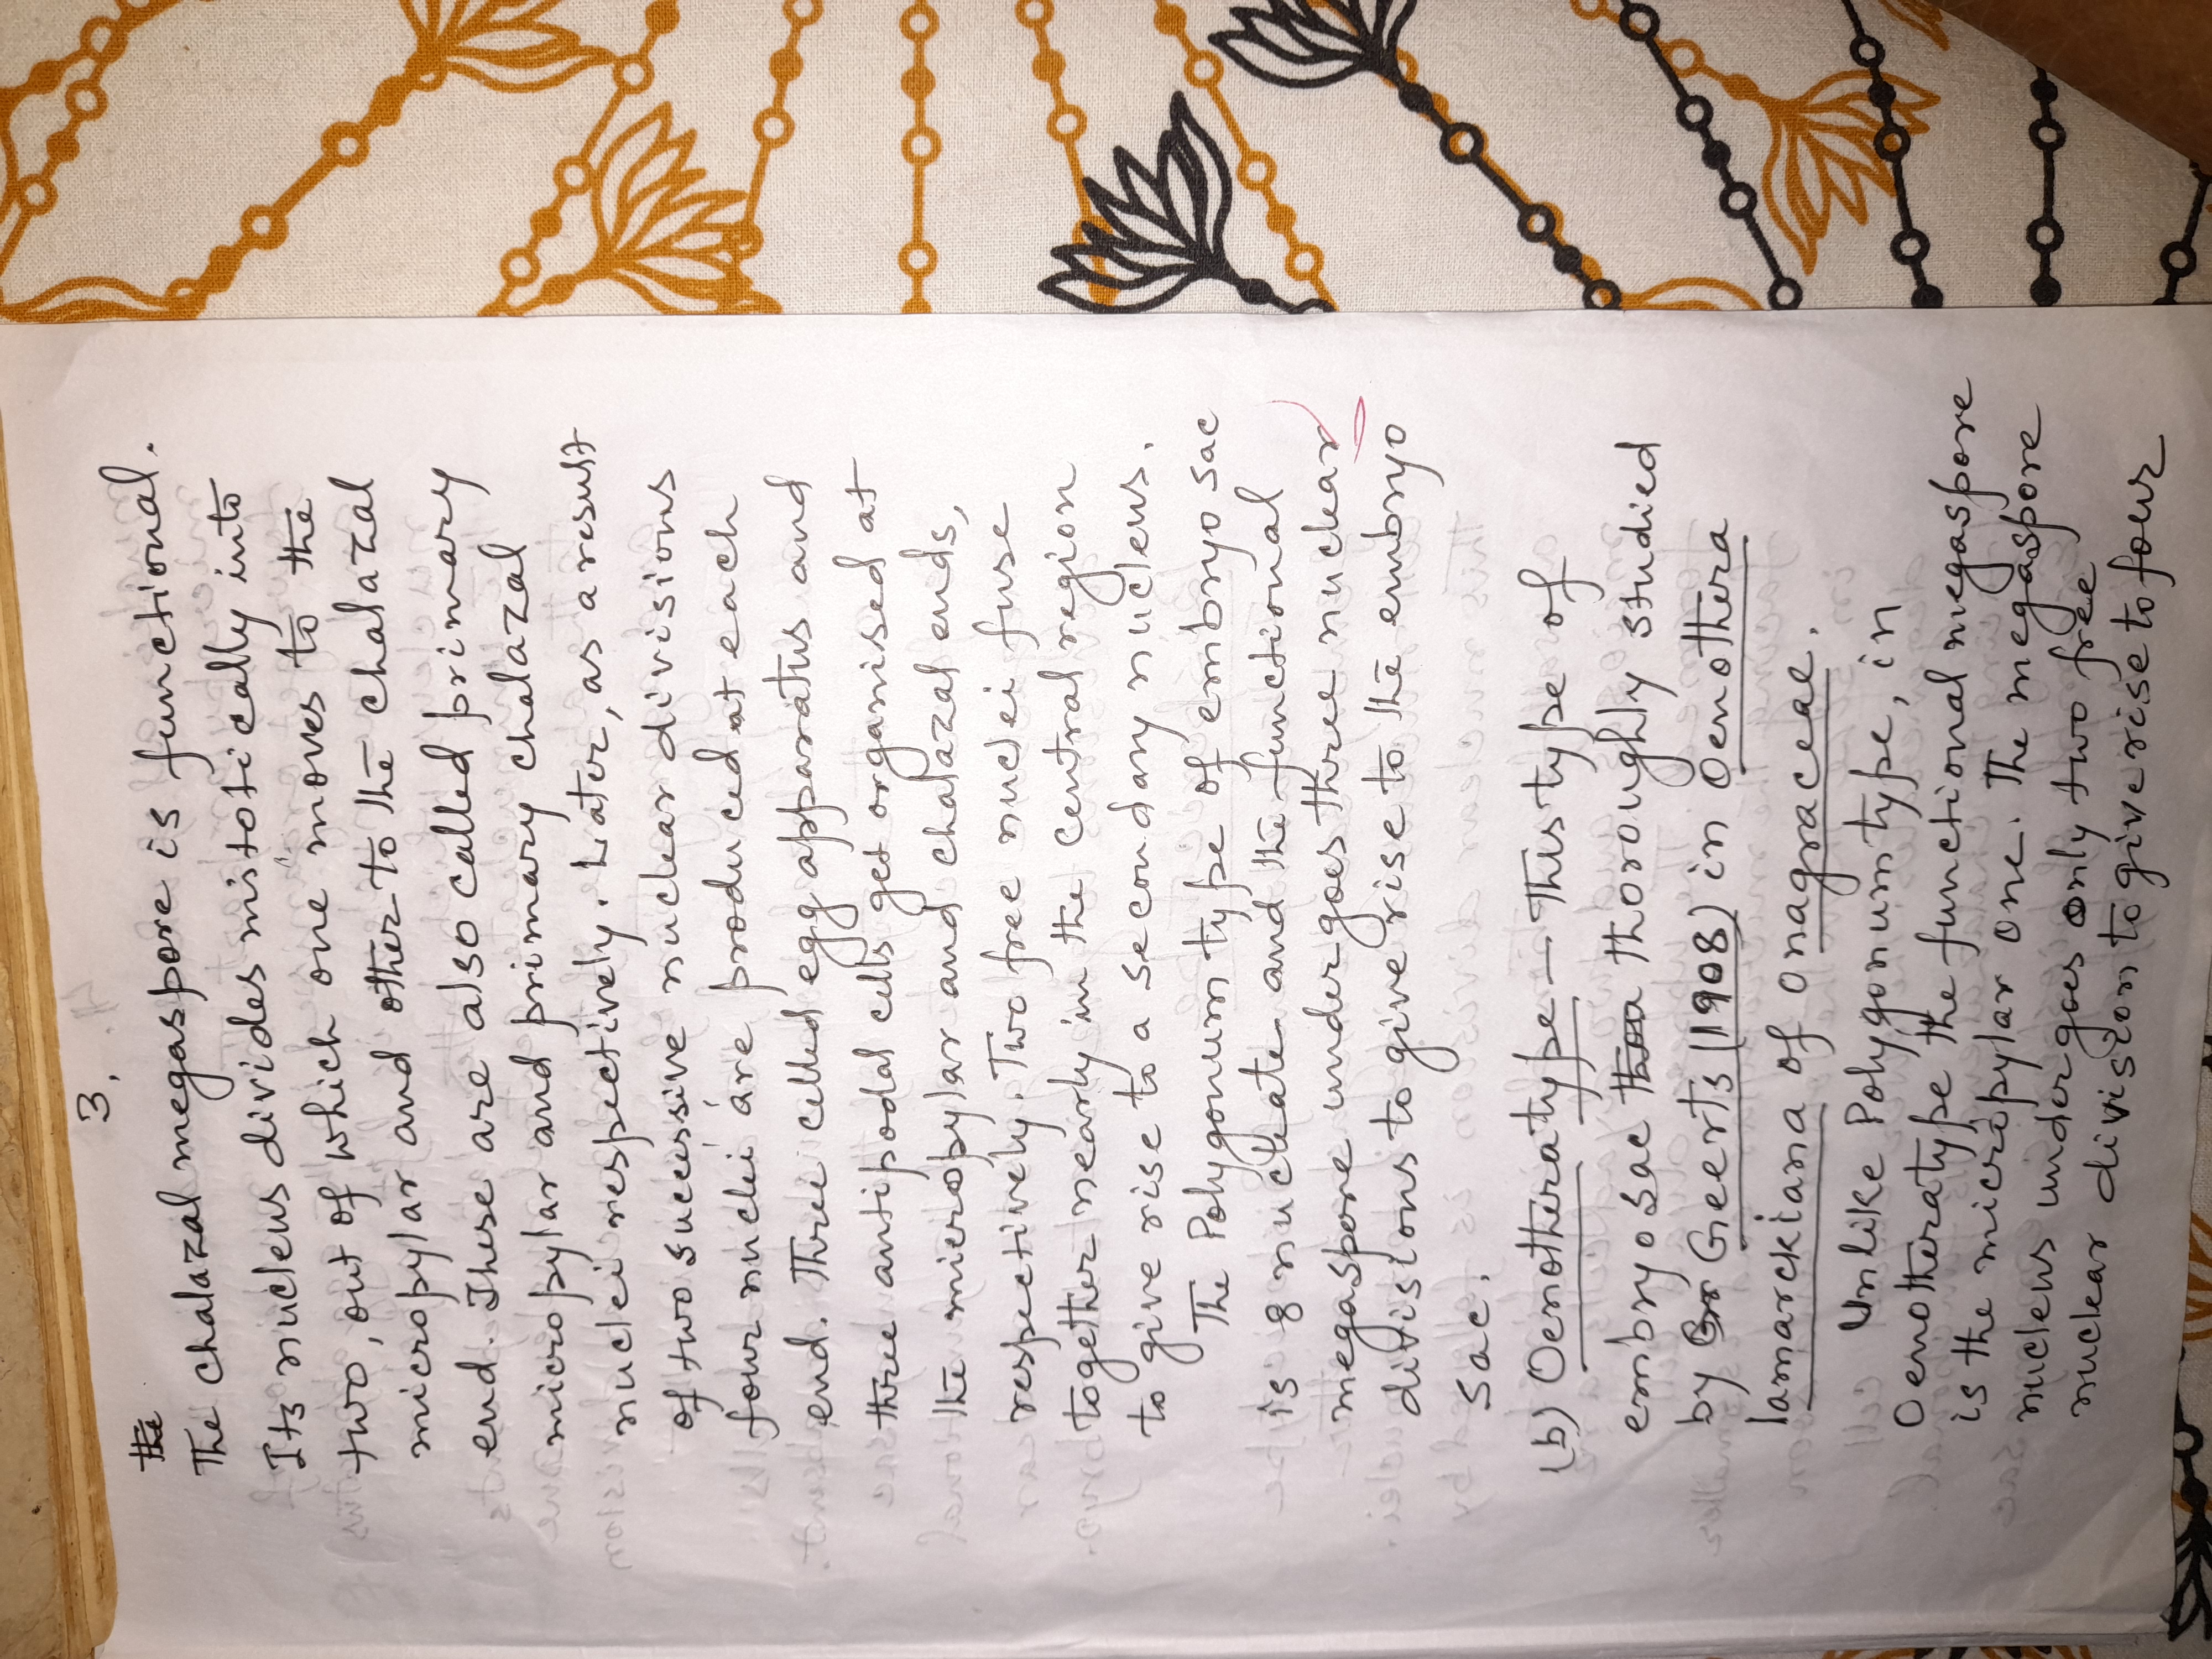 3.
the
The chalazal megaspore is functional.
Its nucleus divides mistotically into
two, out of which one moves to the
micropylar and other to the chalazal
end. These are also called primary
micropylar and primary chalazal
nuclei respectively. Later, as a result
of two successive nuclear divisions
four nuclei are produced at each
end. Three celled egg apparatus and
three antipodal cells get organised at
the micropylar and chalazal ends,
respectively. Two free nuclei fuse
together nearly in the central region
to give rise to a secondary nucleus.
The Polygonum type of embryo sac
is 8 nucleate and the functional
megaspore undergoes three nuclear
divisions to give rise to the embryo
sac.
(b) Oenothera type – This type of
embryo sac thoroughly studied
by Geerts (1908) in Oenothera
lamarckiana of Onagraceae.
Unlike Polygonum type, in
Oenothera type the functional megaspore
is the micropylar one. The megaspore
nucleus undergoes only two free
nuclear division to give rise to four